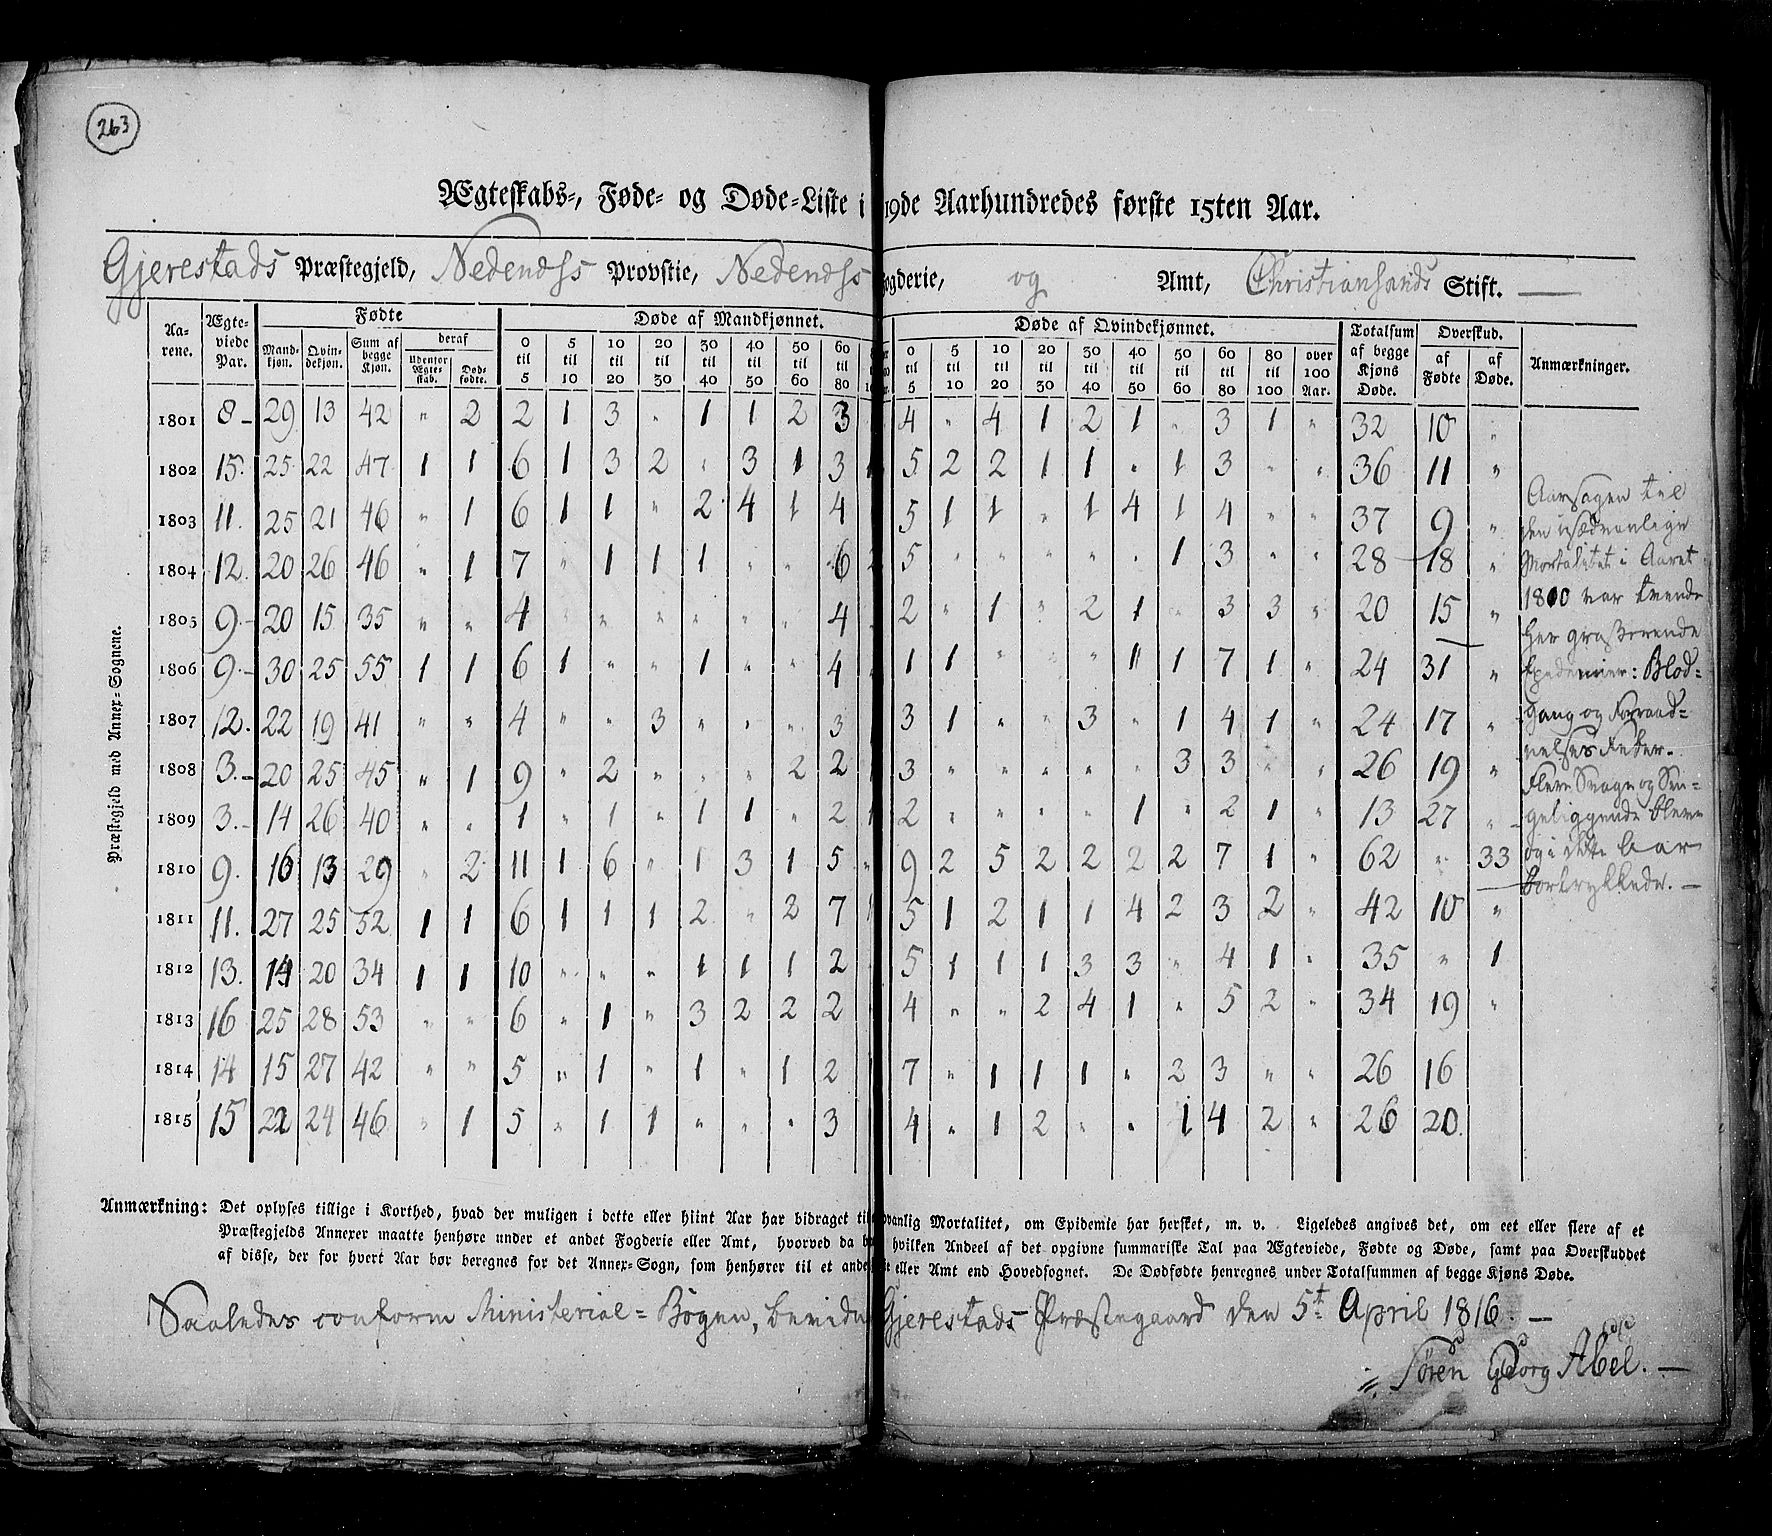 263
Ægteskabs-, Føde- og Døde-Liste i 19de Aarhundredes første 15ten Aar.
Gjerestads Præstegjeld, Nedenæss Provstie, Nedenæss ogderie, og Amt, Christiansands Stift.
Aa-rene. Ægte-viede Par. Fødte Døde af Mandkjønnet. Døde af Qvindekjønnet. Totalsum af begge Kjøns Døde. Overskud. Anmærkninger.
Mand-kjøn. Qvin-dekjøn. Sum af begge Kjøn. deraf Udenfor Ægte-skab. Død-fødte. 0 til 5 5 til 10 10 til 20 20 til 30 30 til 40 40 til 50 50 til 60 60 til 80 0 til 5 5 til 10 10 til 20 20 til 30 30 til 40 40 til 50 50 til 60 60 til 80 80 til 100 over 100 Aar. af Fødte af Døde.
Præstegjeld med Annex-Sognene.
1801 8 29 13 42 " 2 2 1 3 " 1 1 2 3 4 " 4 1 2 1 " 3 1 " 32 10 "
1802 15. 25 22 47 1 1 6 1 3 2 " 3 1 3 5 2 2 1 1 " 1 3 " " 36 11 "
1803 11. 25 21 46 " 1 6 1 1 " 2 4 1 4 5 1 1 " 1 4 1 4 " " 37 9 "
1804 12. 20 26 46 " 1 7 " 1 1 1 " " 6 5 " " " " " 1 3 " " 28 18 "
1805 9. 20 15 35 " " 4 " " " " " " 4 2 " 1 " 2 1 " 3 3 " 20 15 "
1806 9. 30 25 55 1 1 6 1 " " 1 " " 4 1 1 " " " 1 1 7 1 " 24 31 "
1807 12. 22 19 41 " " 4 " " 3 " " " 3 3 1 " " 3 " 1 4 1 " 24 17 "
1808 3. 20 25 45 " 1 9 " 2 " " " 2 2 3 " " " " " 3 3 " " 26 19 "
1809 3. 14 26 40 " " 1 " 1 " 1 1 " 2 2 " " " " 1 " 2 1 " 13 27 "
1810 9. 16 13 29 " 2 11 1 6 " 1 3 1 5 9 2 5 2 2 2 2 7 1 " 62 " 33
1811 11. 27 25 52 1 1 6 1 1 1 2 " 2 7 5 1 2 1 1 4 2 3 2 " 42 10 "
1812 13. 14 20 34 1 1 10 " " " 1 1 1 2 5 1 1 1 3 3 " 4 1 " 35 " 1
1813 16 25 28 53 " " 6 " 1 " 3 2 2 2 4 " " 2 4 1 " 5 2 " 34 19 "
1814 14 15 27 42 " " 5 " 1 " 1 " 1 2 7 " 1 1 1 " 2 3 " " 26 16
1815 15 22 24 46 " 1 5 " 1 1 " " " 3 4 " 1 2 " " 1 4 2 " 26 20.
Aarsagen til
den usædvanlige
Mortalitet i Aaret
1810 var tvende
her grasserende
Epedemier: Blod-
gang og Forraad-
nelses Feber.
Flere Svage og Sen-
geliggende bleve
og i dette Aar
bortrykkede. —
Anmærkning: Det oplyses tillige i Korthed, hvad der muligen i dette eller hiint Aar har bidraget til vanlig Mortalitet, om Epidemie har hersket, m. v. Ligeledes angives det, om eet eller flere af et
Præstegjelds Annexer maatte henhøre under et andet Fogderie eller Amt, hvorved da hvilken Andeel af det opgivne summariske Tal paa Ægteviede, Fødte og Døde, samt paa Overskuddet
af disse, der for hvert Aar bør beregnes for det Annex-Sogn, som henhører til et andet eller Amt end Hovedsognet. De Dødfødte henregnes under Totalsummen af begge Kjøns Døde.
Saaledes conform Ministerial-Bogen, bevidner Gjerestads Præstegaard den 5t April 1816. —
Søren Georg Abel. —